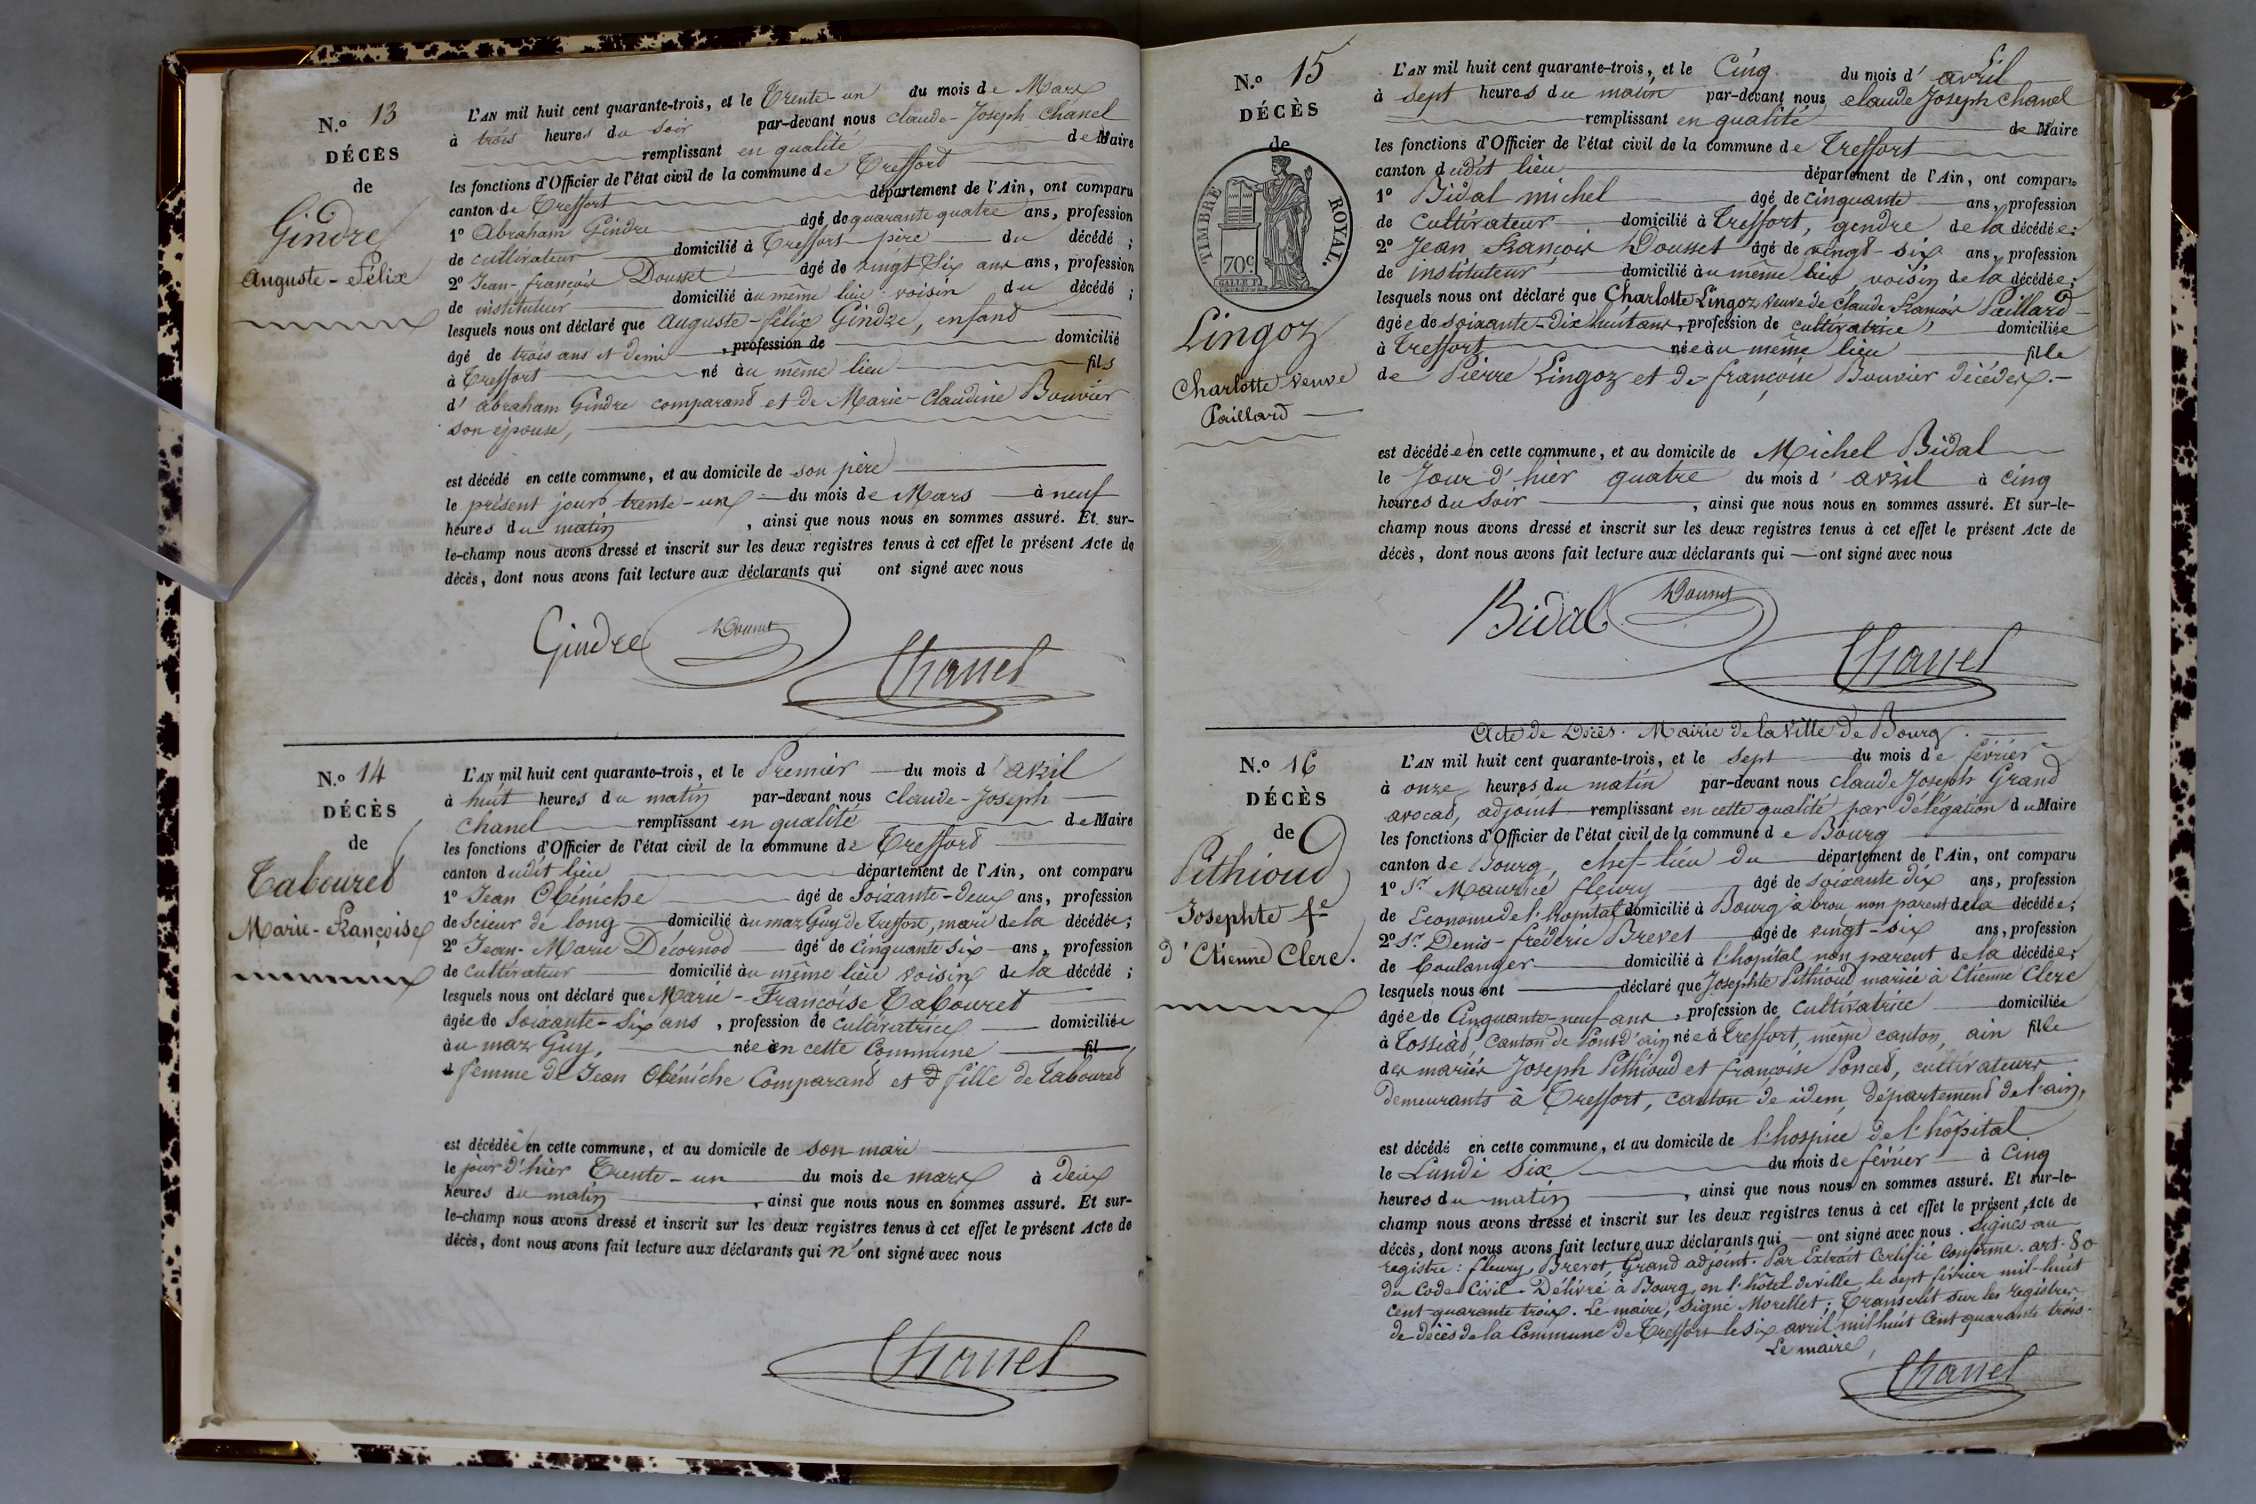 N.º 13
DÉCÈS
de
Gindre
Auguste-Félix
L'AN mil huit cent quarante-trois, et le Trente-un du mois de Mars
à trois heures du soir par-devant nous Claude-Joseph Chanel
remplissant en qualité de Maire
les fonctions d'Officier de l'état civil de la commune de Treffort
canton de Treffort département de l'Ain, ont comparu
1º Abraham Gindre âgé de quarante quatre ans, profession
de cultivateur domicilié à Treffort père du décédé ;
2º Jean-françois Dousset âgé de vingt-Six ans ans, profession
de instituteur domicilié au même lieu voisin du décédé ;
lesquels nous ont déclaré que Auguste-félix Gindre, enfant
âgé de trois ans et demi , profession de domicilié
à Treffort né au même lieu fils
d'abraham Gindre comparant et de Marie-Claudine Bouvier
son épouse,
est décédé en cette commune, et au domicile de son père
le présent jour trente-un du mois de Mars à neuf
heures du matin , ainsi que nous nous en sommes assuré. Et sur-
le-champ nous avons dressé et inscrit sur les deux registres tenus à cet effet le présent Acte de
décès, dont nous avons fait lecture aux déclarants qui ont signé avec nous
Gindre Dousset
Chanel
N.º 14
DÉCÈS
de
Tabouret
Marie-Françoise
L'AN mil huit cent quarante-trois, et le Premier du mois d'avril
à huit heures du matin par-devant nous Claude-Joseph
Chanel remplissant en qualité de Maire
les fonctions d'Officier de l'état civil de la commune de Treffort
canton dudit lieu département de l'Ain, ont comparu
1º Jean Obéniche âgé de Soixante-deux ans, profession
de Scieur de long domicilié au mas Guy de Treffort, mari de la décédée ;
2º Jean-Marie Decornod âgé de Cinquante Six ans, profession
de cultivateur domicilié au même lieu voisin de la décédé ;
lesquels nous ont déclaré que Marie-Françoise Tabouret
âgée de Soixante-Six ans , profession de cultivatrice domiciliée
au mas Guy, née en cette Commune fil
femme de Jean Obéniche Comparant et fille de Tabouret
est décédée en cette commune, et au domicile de son mari
le jour d'hier Trente-un du mois de mars à deux
heures du matin , ainsi que nous nous en sommes assuré. Et sur-
le-champ nous avons dressé et inscrit sur les deux registres tenus à cet effet le présent Acte de
décès, dont nous avons fait lecture aux déclarants qui n'ont signé avec nous
Chanel
N.º 15
DÉCÈS
de
TIMBRE ROYAL.
70c
Lingoz
Charlotte veuve
Paillard
L'AN mil huit cent quarante-trois, et le Cinq du mois d'avril
à sept heures du matin par-devant nous Claude Joseph Chanel
remplissant en qualité de Maire
les fonctions d'Officier de l'état civil de la commune de Treffort
canton dudit lieu département de l'Ain, ont comparu
1º Bidal michel âgé de cinquante ans, profession
de Cultivateur domicilié à Treffort, gendre de la décédée ;
2º Jean François Dousset âgé de vingt-six ans, profession
de instituteur domicilié au même lieu voisin de la décédée ;
lesquels nous ont déclaré que Charlotte Lingoz veuve de Claude François Paillard
âgée de soixante-dix huit ans, profession de cultivatrice domiciliée
à Treffort née au même lieu fille
de Pierre Lingoz et de françoise Bouvier décédés.
est décédée en cette commune, et au domicile de Michel Bidal
le Jour d'hier quatre du mois d'avril à cinq
heures du Soir , ainsi que nous nous en sommes assuré. Et sur-le-
champ nous avons dressé et inscrit sur les deux registres tenus à cet effet le présent Acte de
décès, dont nous avons fait lecture aux déclarants qui ont signé avec nous
Bidal Dousset
Chanel
N.º 16
DÉCÈS
de
Pithioud
Josephte fe
d'Etienne Clerc.
Acte de Décès. Mairie de la Ville de Bourg.
L'AN mil huit cent quarante-trois, et le sept du mois de février
à onze heures du matin par-devant nous Claude Joseph Grand
avocat, adjoint remplissant en cette qualité par délégation du Maire
les fonctions d'Officier de l'état civil de la commune de Bourg
canton de Bourg, chef-lieu du département de l'Ain, ont comparu
1º Sr Maurice fleury âgé de soixante dix ans, profession
de Econome de l'hopital domicilié à Bourg à brou non parent de la décédée ;
2º Sr Denis-frédéric Brevet âgé de vingt-six ans, profession
de boulanger domicilié à l'hopital non parent de la décédée ;
lesquels nous ont déclaré que Josephte Pithioud mariée à Etienne Clerc
âgée de Cinquante-neuf ans , profession de cultivatrice domiciliée
à Tossiat canton de Pont d'ain née à Treffort, même canton, ain fille
des mariés Joseph Pithioud et françoise Poncet, cultivateurs
demeurants à Treffort, canton de idem, département de l'ain,
est décédé en cette commune, et au domicile de l'hospice de l'hôpital
le Lundi Six du mois de février à Cinq
heures du matin , ainsi que nous nous en sommes assuré. Et sur-le-
champ nous avons dressé et inscrit sur les deux registres tenus à cet effet le présent Acte de
décès, dont nous avons fait lecture aux déclarants qui ont signé avec nous. Signés au
registre : fleury, Brevet, Grand adjoint. Par Extrait Certifié Conforme. art. 80
du Code Civil. Délivré à Bourg, en l'hôtel de ville, le sept février mil-huit
cent-quarante trois. Le maire, signé Morellet ; Transcrit sur les registres
de décès de la Commune de Treffort le six avril mil huit Cent quarante trois.
Le maire,
Chanel